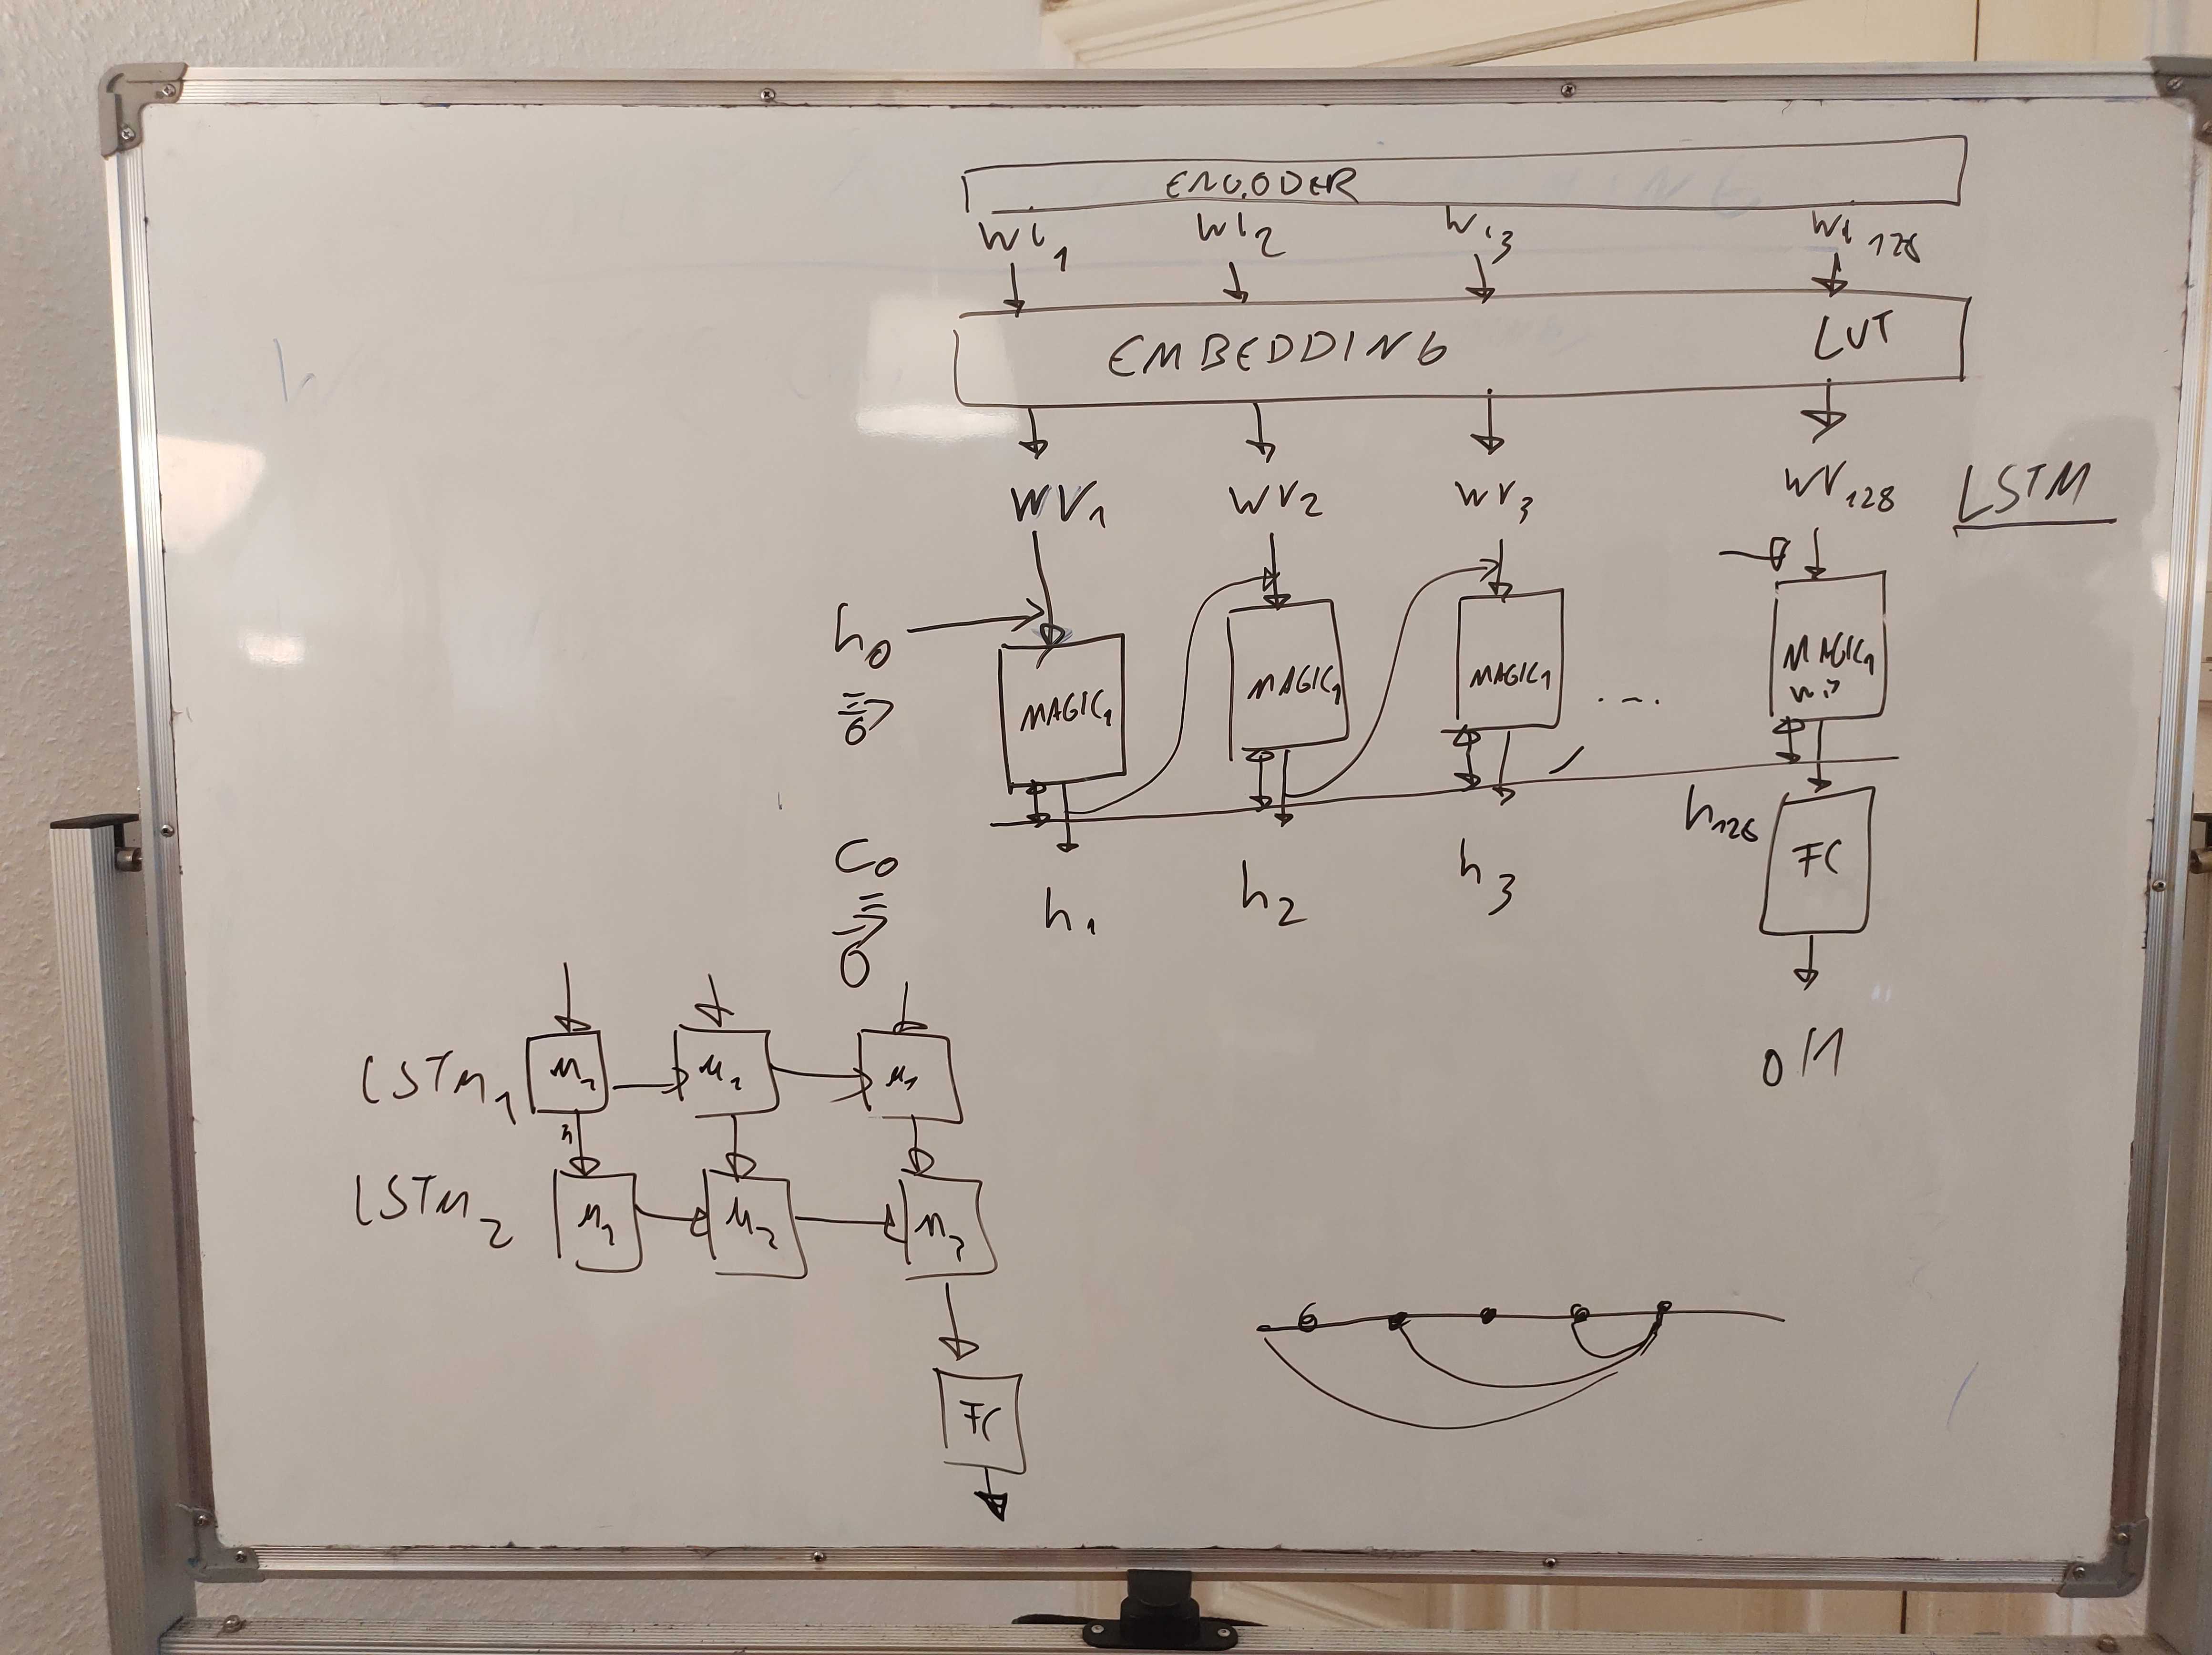 ENCODER
wi1 wi2 wi3 wi128
EMBEDDING LUT
WV1 WV2 WV3 WV128
LSTM
h0
=
0
MAGIC1 MAGIC1 MAGIC1 .... MAGIC1
C0
=
0
h1 h2 h3 h128
FC
0/1
LSTM1 M1 M1 M1
LSTM2 M2 M2 M2
FC